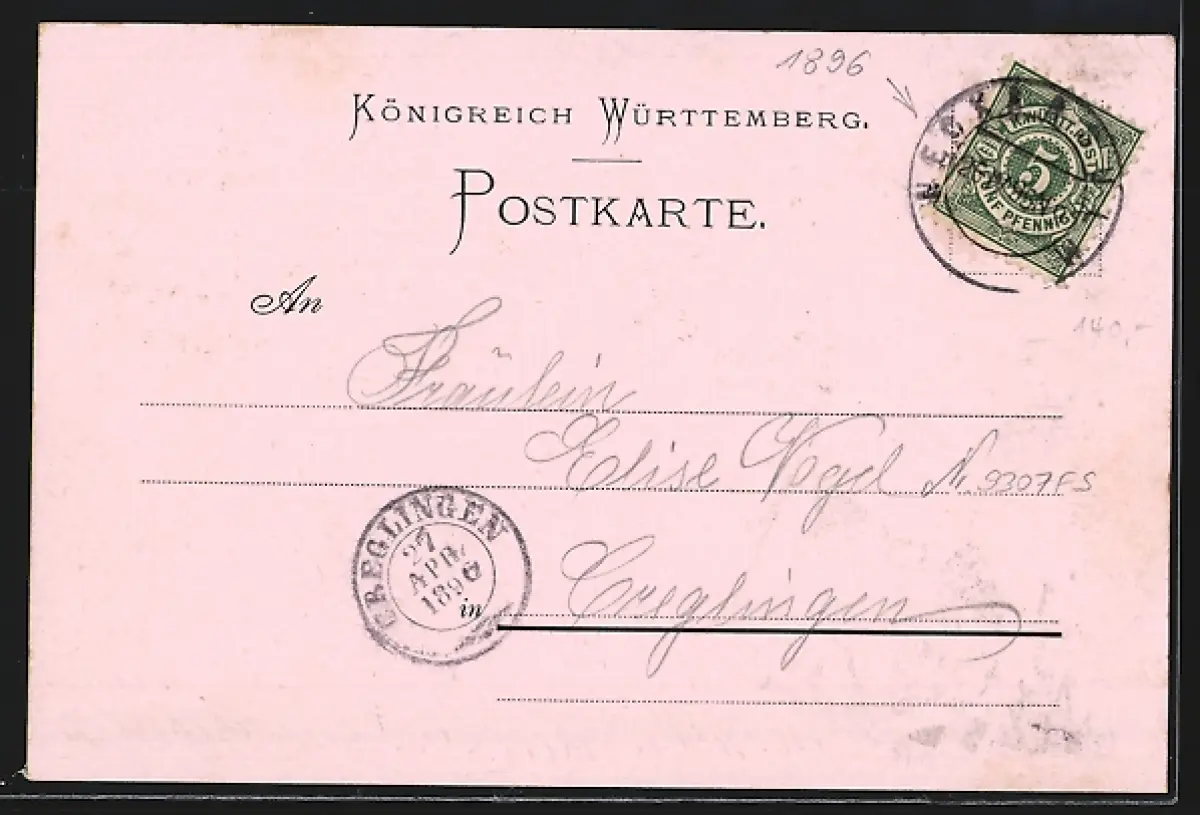 1896
KÖNIGREICH WÜRTTEMBERG.
POSTKARTE.
5
FÜNF PFENNIG
An
140,-
Fräulein
Elise Vogel N. 9307FS
CREGLINGEN
27
APR
1896
in Creglingen